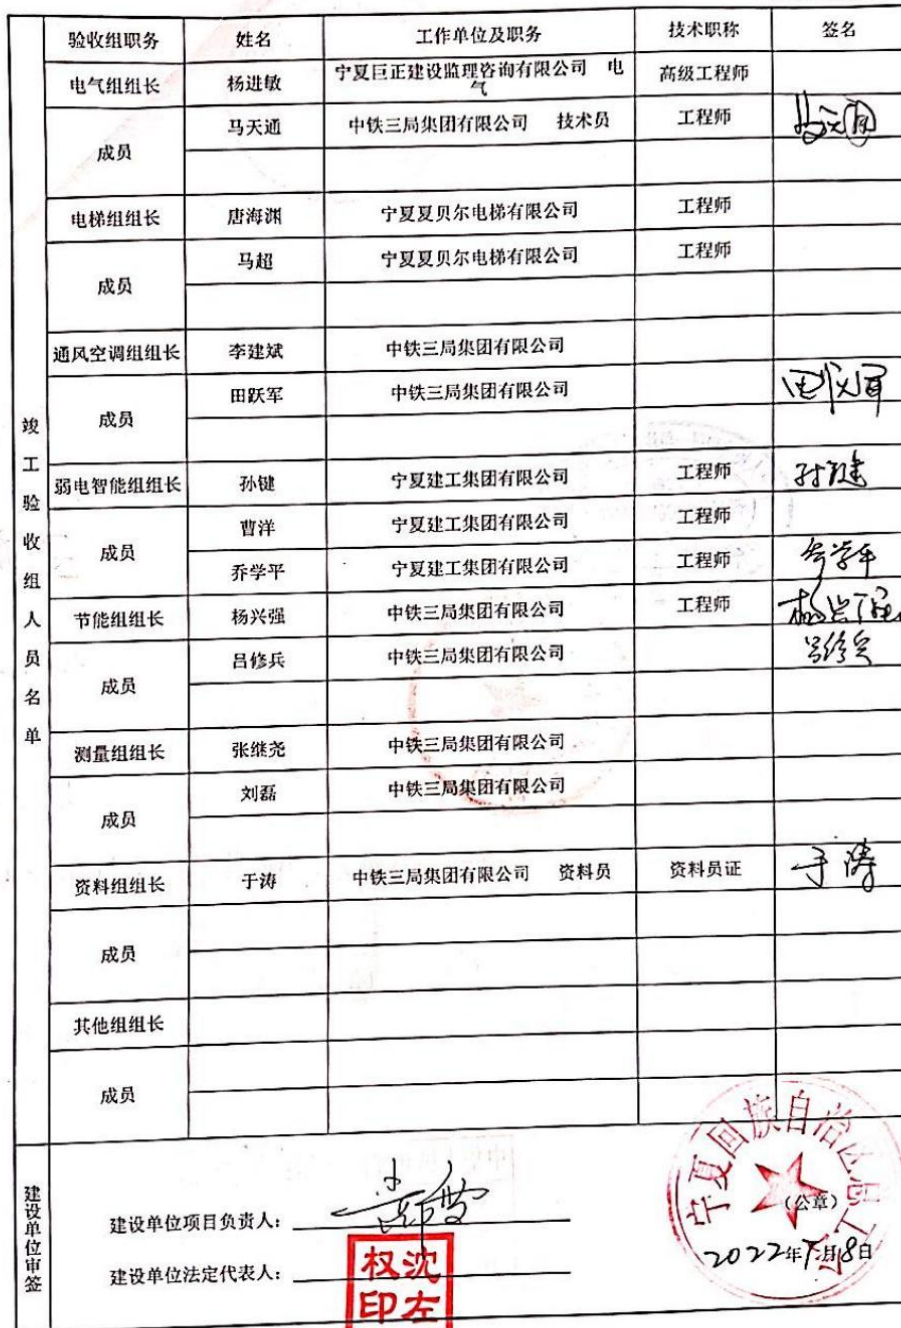 验收组职务 姓名 工作单位及职务 技术职称 签名
电气组组长 杨进敏 宁夏巨正建设监理咨询有限公司 电气 高级工程师
成员 马天通 中铁三局集团有限公司 技术员 工程师
电梯组组长 唐海渊 宁夏夏贝尔电梯有限公司 工程师
成员 马超 宁夏夏贝尔电梯有限公司 工程师
通风空调组组长 李建斌 中铁三局集团有限公司
成员 田跃军 中铁三局集团有限公司
弱电智能组组长 孙键 宁夏建工集团有限公司 工程师 孙键
成员 曹洋 宁夏建工集团有限公司 工程师
乔学平 宁夏建工集团有限公司 工程师 乔学平
节能组组长 杨兴强 中铁三局集团有限公司 工程师 杨兴强
成员 吕修兵 中铁三局集团有限公司 吕修兵
测量组组长 张继尧 中铁三局集团有限公司
成员 刘磊 中铁三局集团有限公司
资料组组长 于涛 中铁三局集团有限公司 资料员 资料员证 于涛
成员
其他组组长
成员
竣工验收组人员名单
建设单位审签
建设单位项目负责人:
建设单位法定代表人:
权沈
印左
宁夏回族自治区总工
(公章)
2022年 月18日